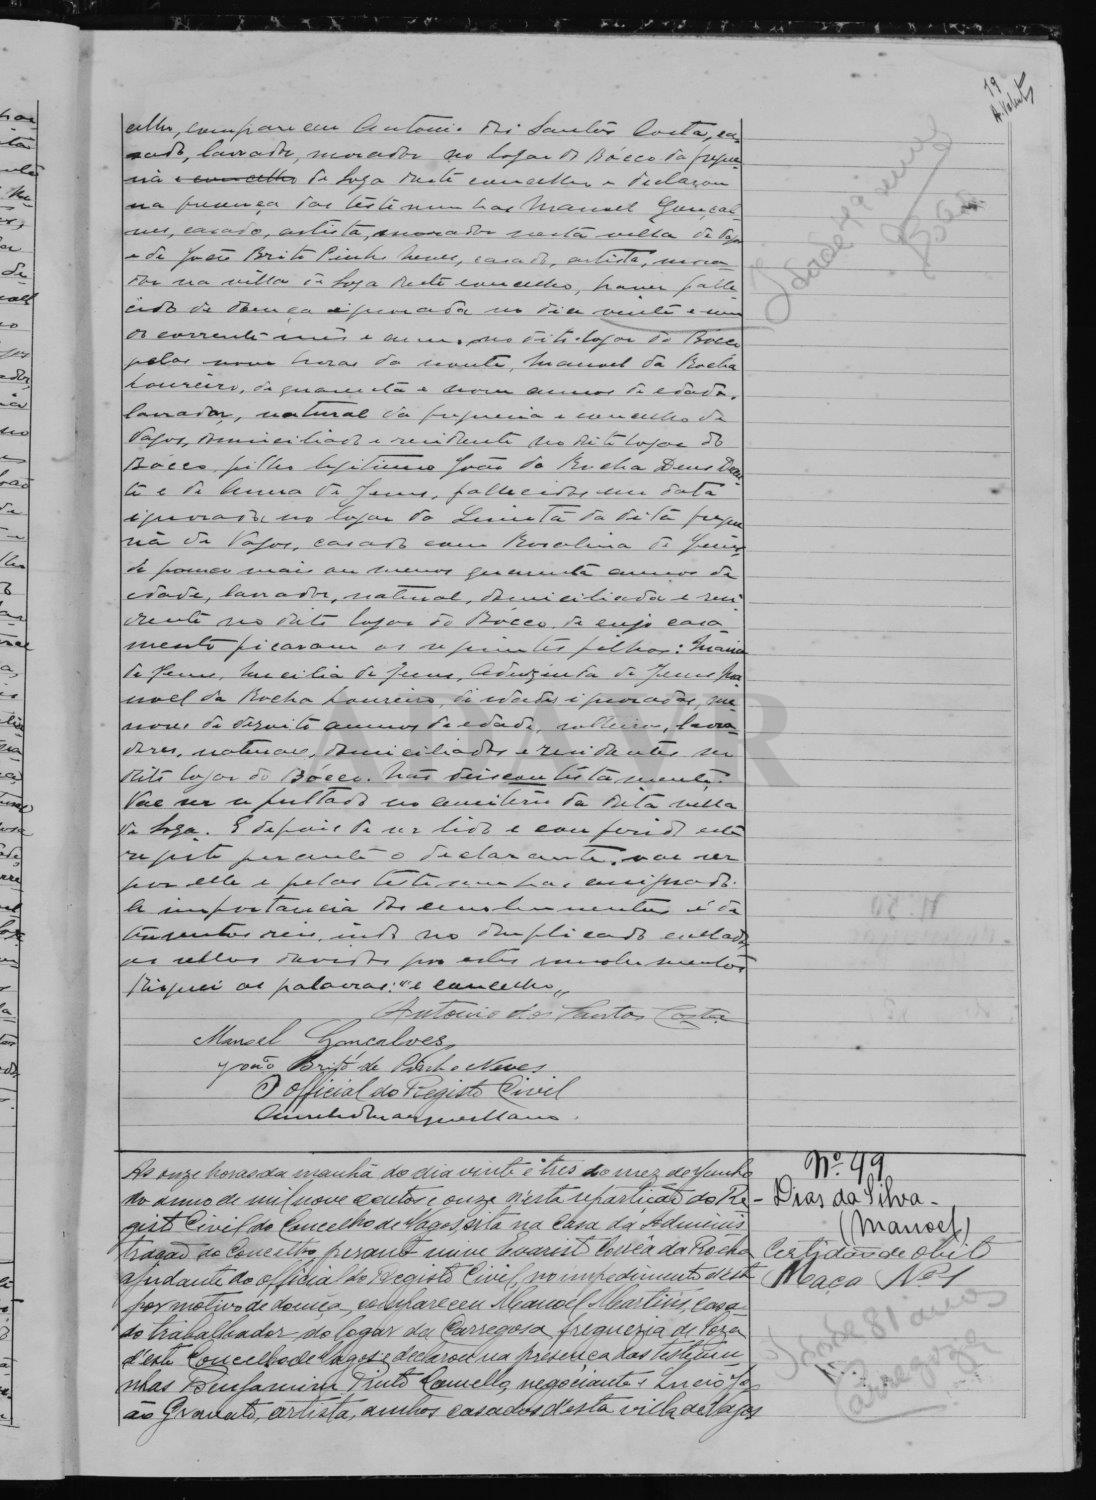 19
celho, compareceu Antonio dos Santos Costa, ca-
sado, lavrador, morador no logar do Bócco da fregue-
sia e concelho de Soza deste concelho e declarou
na presença das testemunhas Manoel Gonçal-
ves, casado, artista, morador nesta villa de Vagos
e de João Brito Pinho Neves, casado, artista, mora-
dor na villa de Soza deste concelho, haver falle-
cido de doença ignorada no dia vinte e um
do corrente mês e anno, no dito logar do Bócco
pelas nove horas da noute, Manoel da Rocha
Loureiro, de quarenta e nove annos de edade,
lavrador, natural da freguesia e concelho de
Vagos, domiciliado e residente no dito logar do
Bócco, filho legitimo João da Rocha Deus Da-
te e de Anna de Jesus, fallecidos em data
ignorada no logar da da dita fregue-
sia de Vagos, casado com Rosalina de Jesus
de pouco mais ou menos quarenta annos de
edade, lavrador, natural, domiciliada e resi-
dente no dito logar do Bócco, de cujo casa
mento ficaram os seguintes filhos: Maria
de Jesus, de Jesus, de Jesus, Ma-
noel da Rocha Loureiro, de edades ignoradas, me-
nores de dezoito annos de edade, solteiros, lavra-
dores, naturaes, domiciliados e residentes no
dito logar do Bócco. Não deixou testamento.
Vae ser sepultado no cemiterio da dita villa
de Soza. E depois de ser lido e conferido este
registo perante o declarante, vae ser
por elle e pelas testemunhas assignado.
A importancia dos emolumentos é de
reis, indo no duplicado collados
os sellos devidos por estes emolumentos
Risquei as palavras: "e concelho"
Antonio dos Santos Costa
Manoel Gonçalves
João Brito de Pinho Neves
O official do Registo Civil
Idade 49 annos
Bóco
As onze horas da manhã do dia vinte e tres do mez de Junho
do anno de mil nove centos e onze n'esta repartição do Re-
gisto Civil do Concelho de Vagos, sita na Casa da Adminis
tração do Concelho, perante mim Evaristo Corrêa da Rocha
ajudante do official do Registo Civil, no impedimento d'este
por motivo de doença, compareceu Manoel Martins, casa-
do trabalhador, do logar da Carregosa, freguezia de Soza
d'este Concelho de Vagos e declarou na presença das testemu-
nhas Benjamim Pinto Camello, negociante e Lucio Jo-
ão Gravato, artista, ambos casados d'esta villa de Vagos
Nº 49
Dias da Silva -
(Manoel)
Certidão de obito
Maço Nº 1
Idade 81 annos
Carregoza